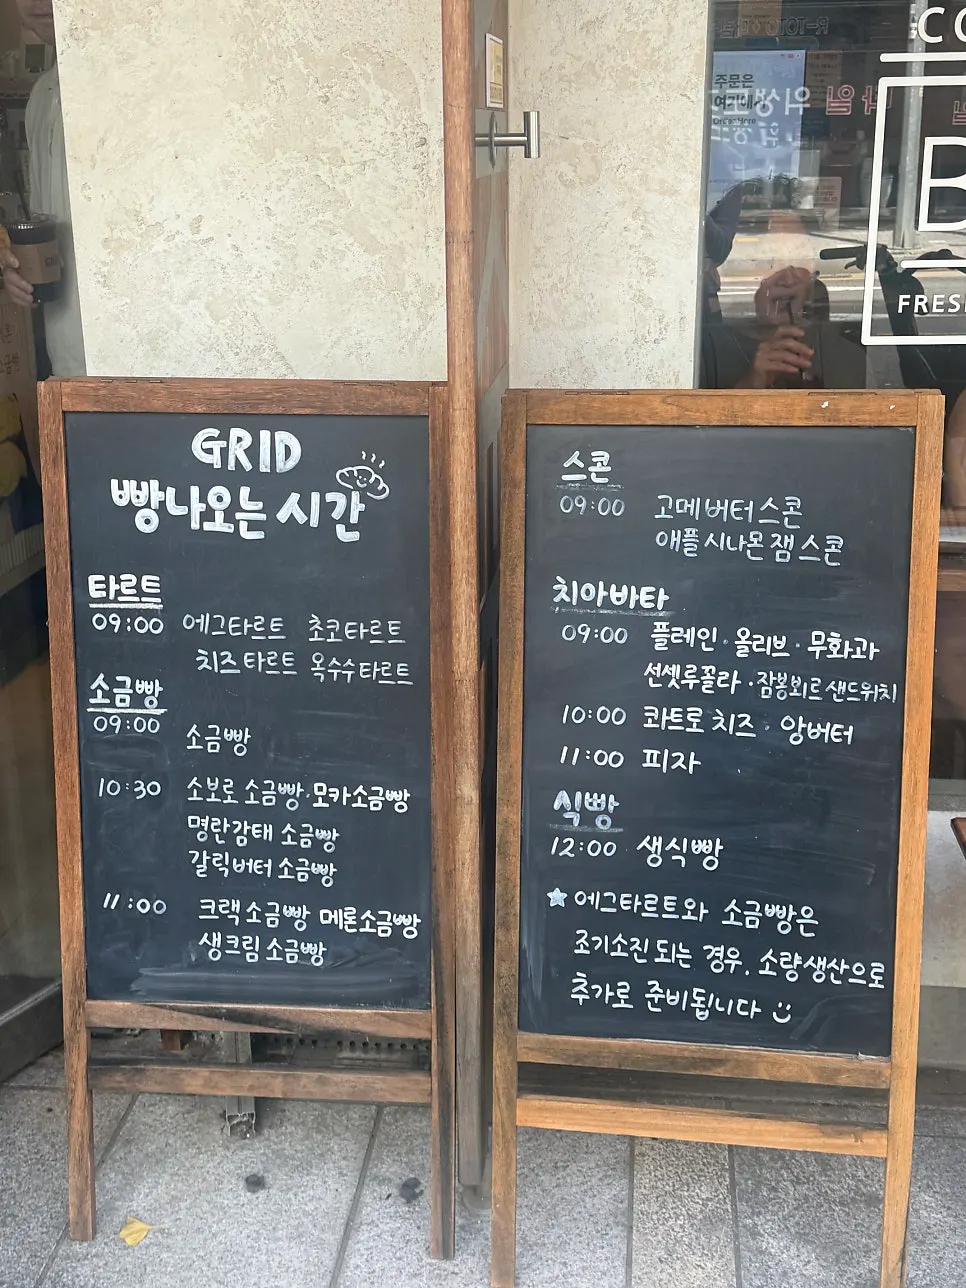 GRID
빵나오는 시간
타르트
09:00 에그타르트 초코타르트
치즈타르트 옥수수타르트
소금빵
09:00 소금빵
10:30 소보로 소금빵·모카소금빵
명란감태 소금빵
갈릭버터 소금빵
11:00 크랙소금빵 메론소금빵
생크림소금빵
스콘
09:00 고메버터스콘
애플시나몬잼스콘
치아바타
09:00 플레인·올리브·무화과
선셋루꼴라·잠봉뵈르샌드위치
10:00 콰트로치즈·앙버터
11:00 피자
식빵
12:00 생식빵
★에그타르트와 소금빵은
조기소진되는 경우, 소량생산으로
추가로 준비됩니다
주문은
여기에서
Order Here
CO
B
FRES